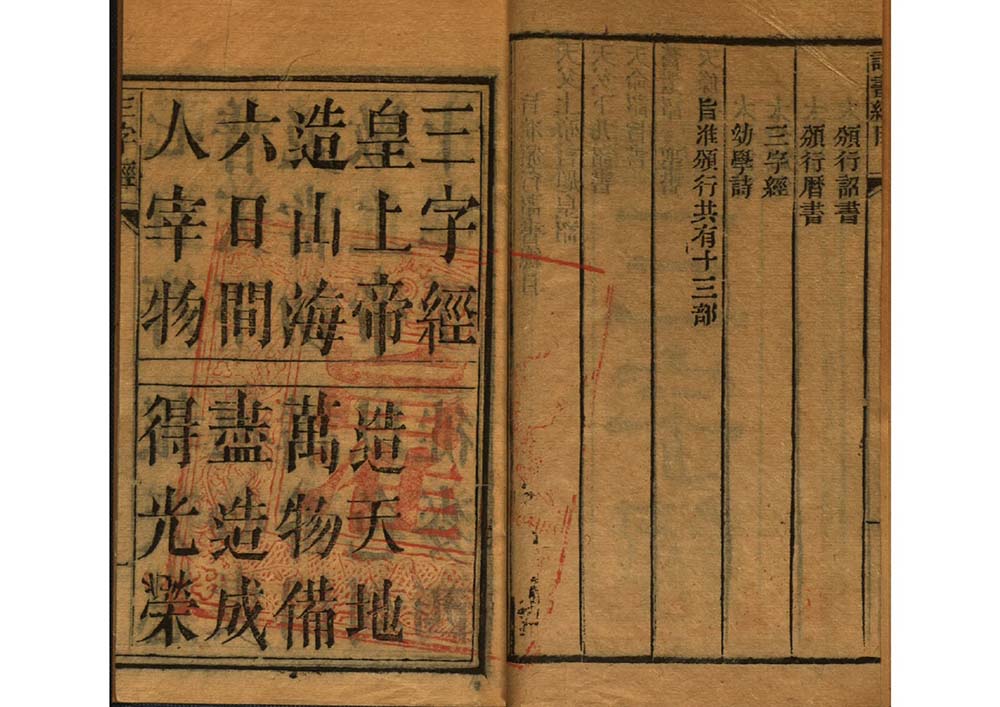 詔書總目
頒行詔書
頒行暦書
三字經
幼學詩
旨准頒行共有十三部
三字經
皇上帝 造天地
造山海 萬物備
六日間 盡造成
人宰物 得光榮
三字經